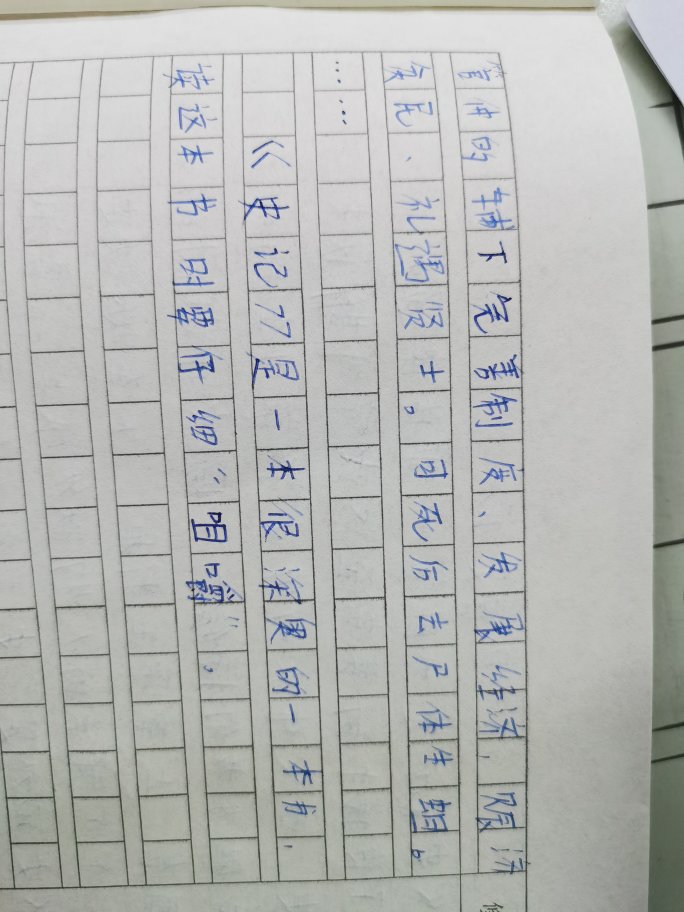 管仲的辅下完善制度、发展经济，赈济
贫民、礼遇贤士。可死后去尸体生蛆。
……
《史记》是一本很深奥的一本书，
读这本书时要仔细“咀嚼”。